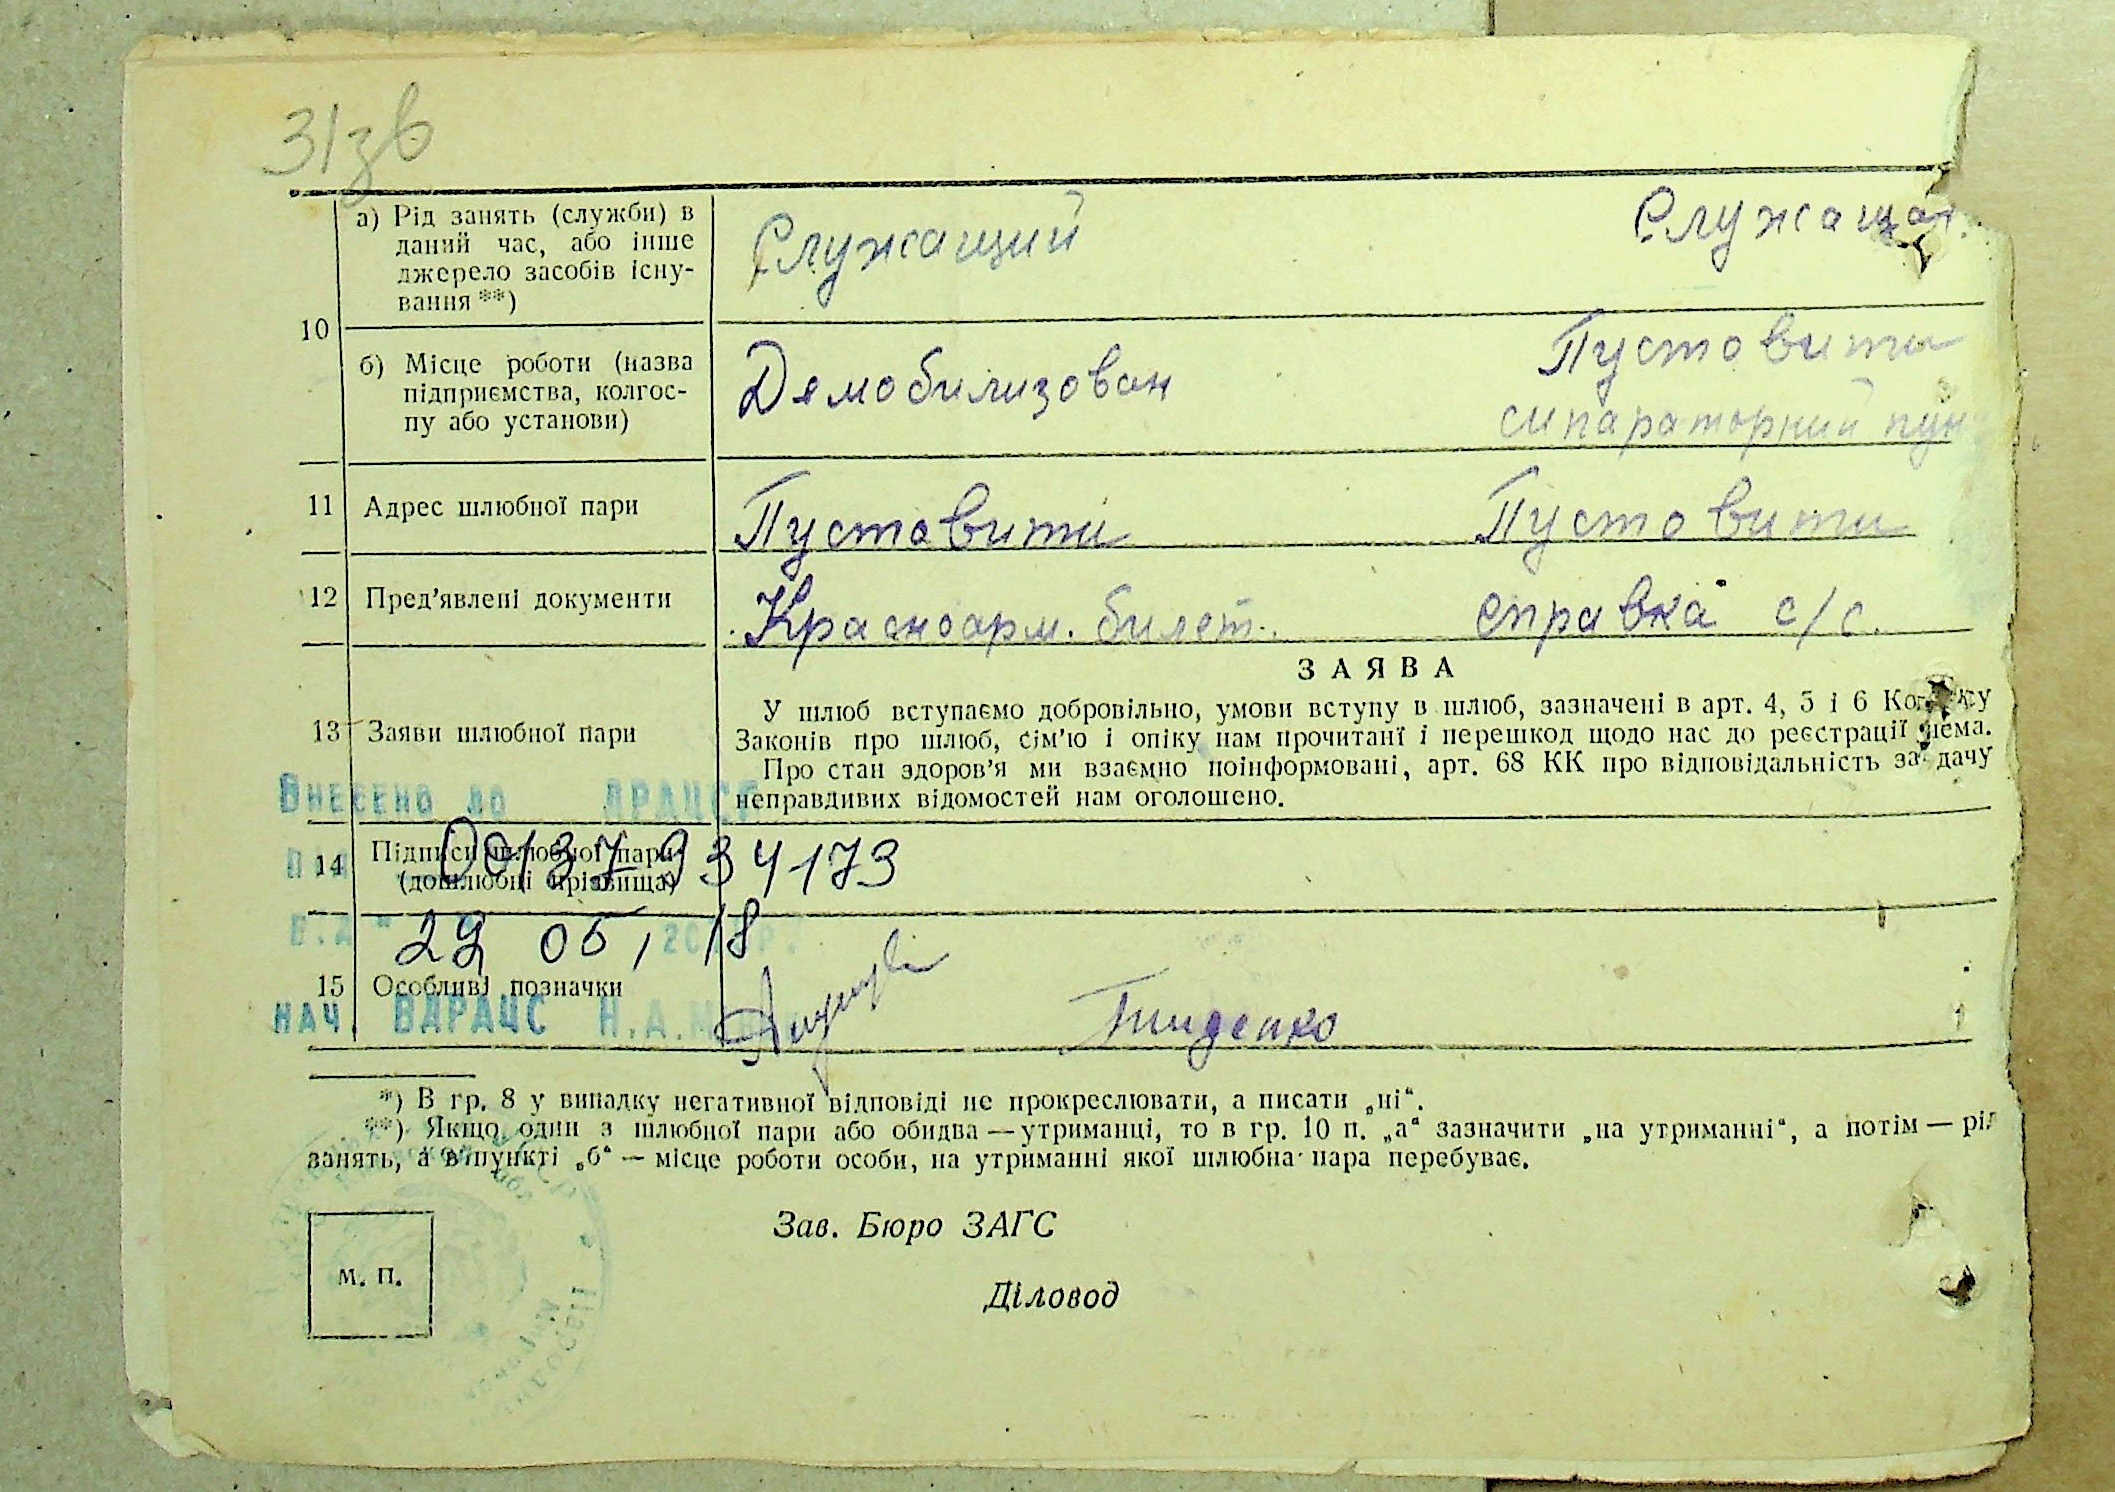 31зв
а) Рід занять (служби) в
даний час, або інше
джерело засобів існу-
вання **)
Служащий
Служащая
10
б) Місце роботи (назва
підприємства, колгос-
пу або установи)
Демобилизован
Пустовити
сипараторний пун
11
Адрес шлюбної пари
Пустовити
Пустовити
12
Пред'явлені документи
Красноарм. билет.
справка с/с.
13
Заяви шлюбної пари
ЗАЯВА
У шлюб вступаємо добровільно, умови вступу в шлюб, зазначені в арт. 4, 5 і 6 Кодексу
Законів про шлюб, сім'ю і опіку нам прочитані і перешкод щодо нас до реєстрації нема.
Про стан здоров'я ми взаємно поінформовані, арт. 68 КК про відповідальність за дачу
неправдивих відомостей нам оголошено.
Внесено до ДРАЦСГ
14
Підписи шлюбної пари
(дошлюбні прізвища)
00137934173
22 05, 2018 р.
15
Особливі позначки
НАЧ. ВДРАЦС Н.А.
*) В гр. 8 у випадку негативної відповіді не прокреслювати, а писати „ні“.
**) Якщо один з шлюбної пари або обидва — утриманці, то в гр. 10 п. „а“ зазначити „на утриманні“, а потім — рід
занять, а в пункті „б“ — місце роботи особи, на утриманні якої шлюбна пара перебуває.
Зав. Бюро ЗАГС
м. п.
Діловод